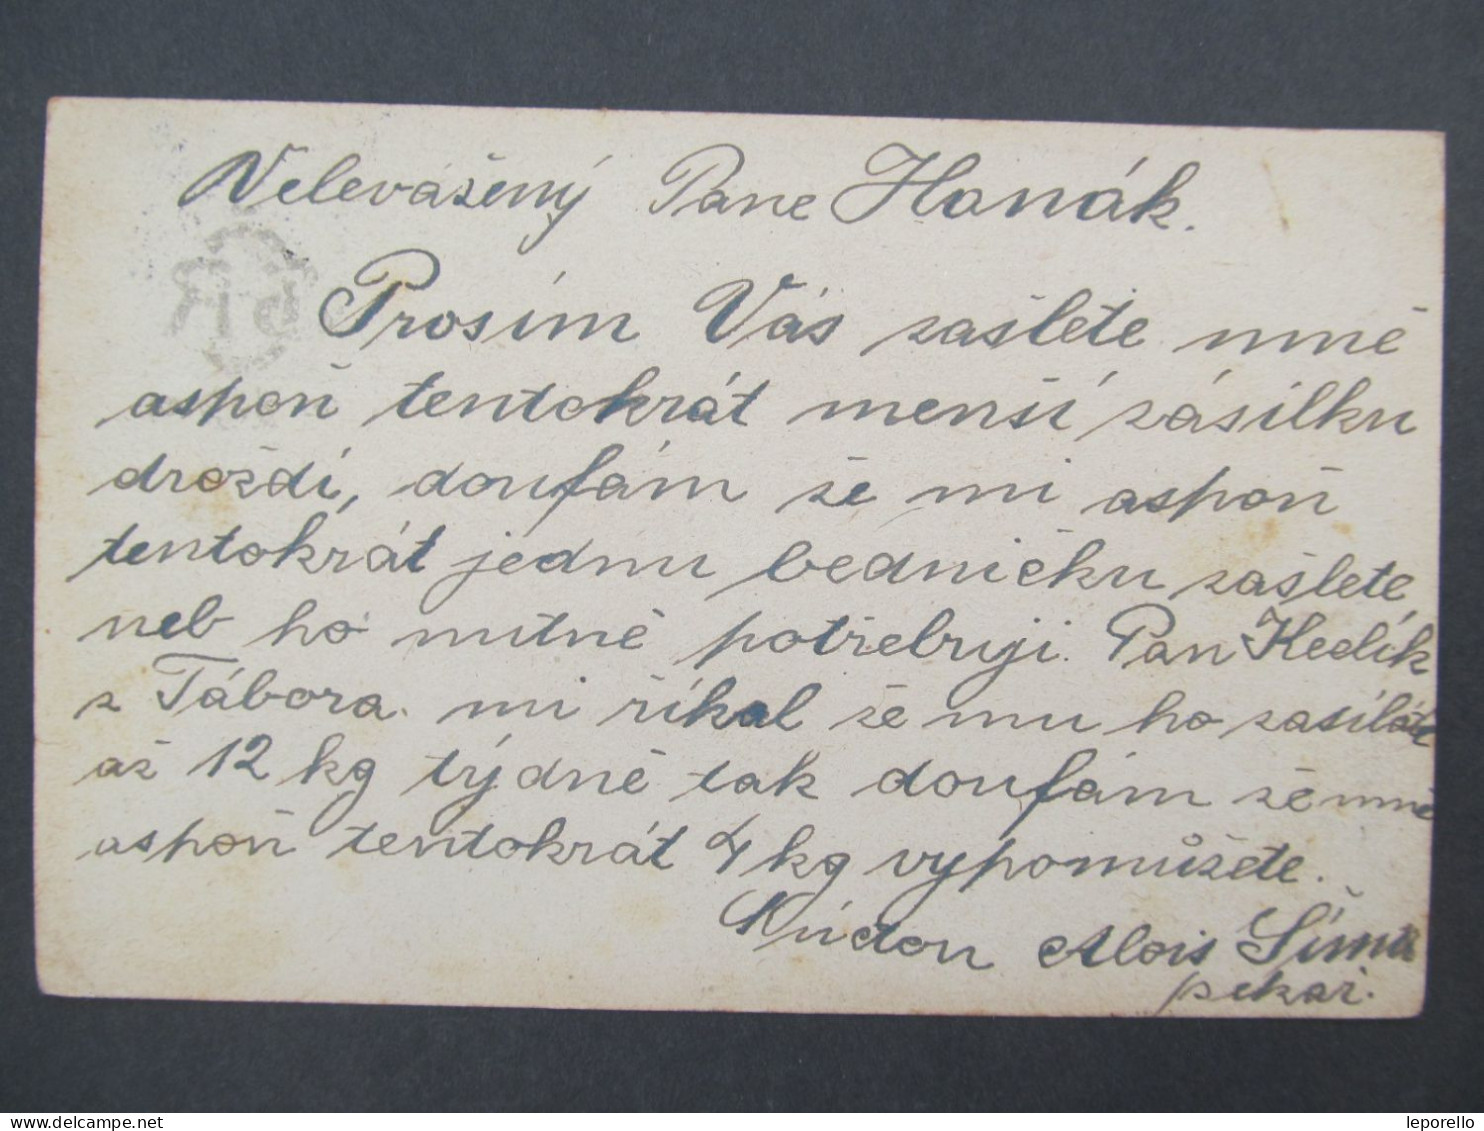 Velevážený Pane Hanák.
Prosím Vás zašlete mně
aspoň tentokrát menší zásilku
droždí, doufám že mi aspoň
tentokrát jednu bedničku zašlete
neb ho nutně potřebuji. Pan Hedík
z Tábora. mi říkal že mu ho zasíláte
až 12 kg týdně tak doufám že mně
aspoň tentokrát 4 kg vypomůžete.
S úctou Alois Šíma
pekař.
www.delcampe.net
leporello